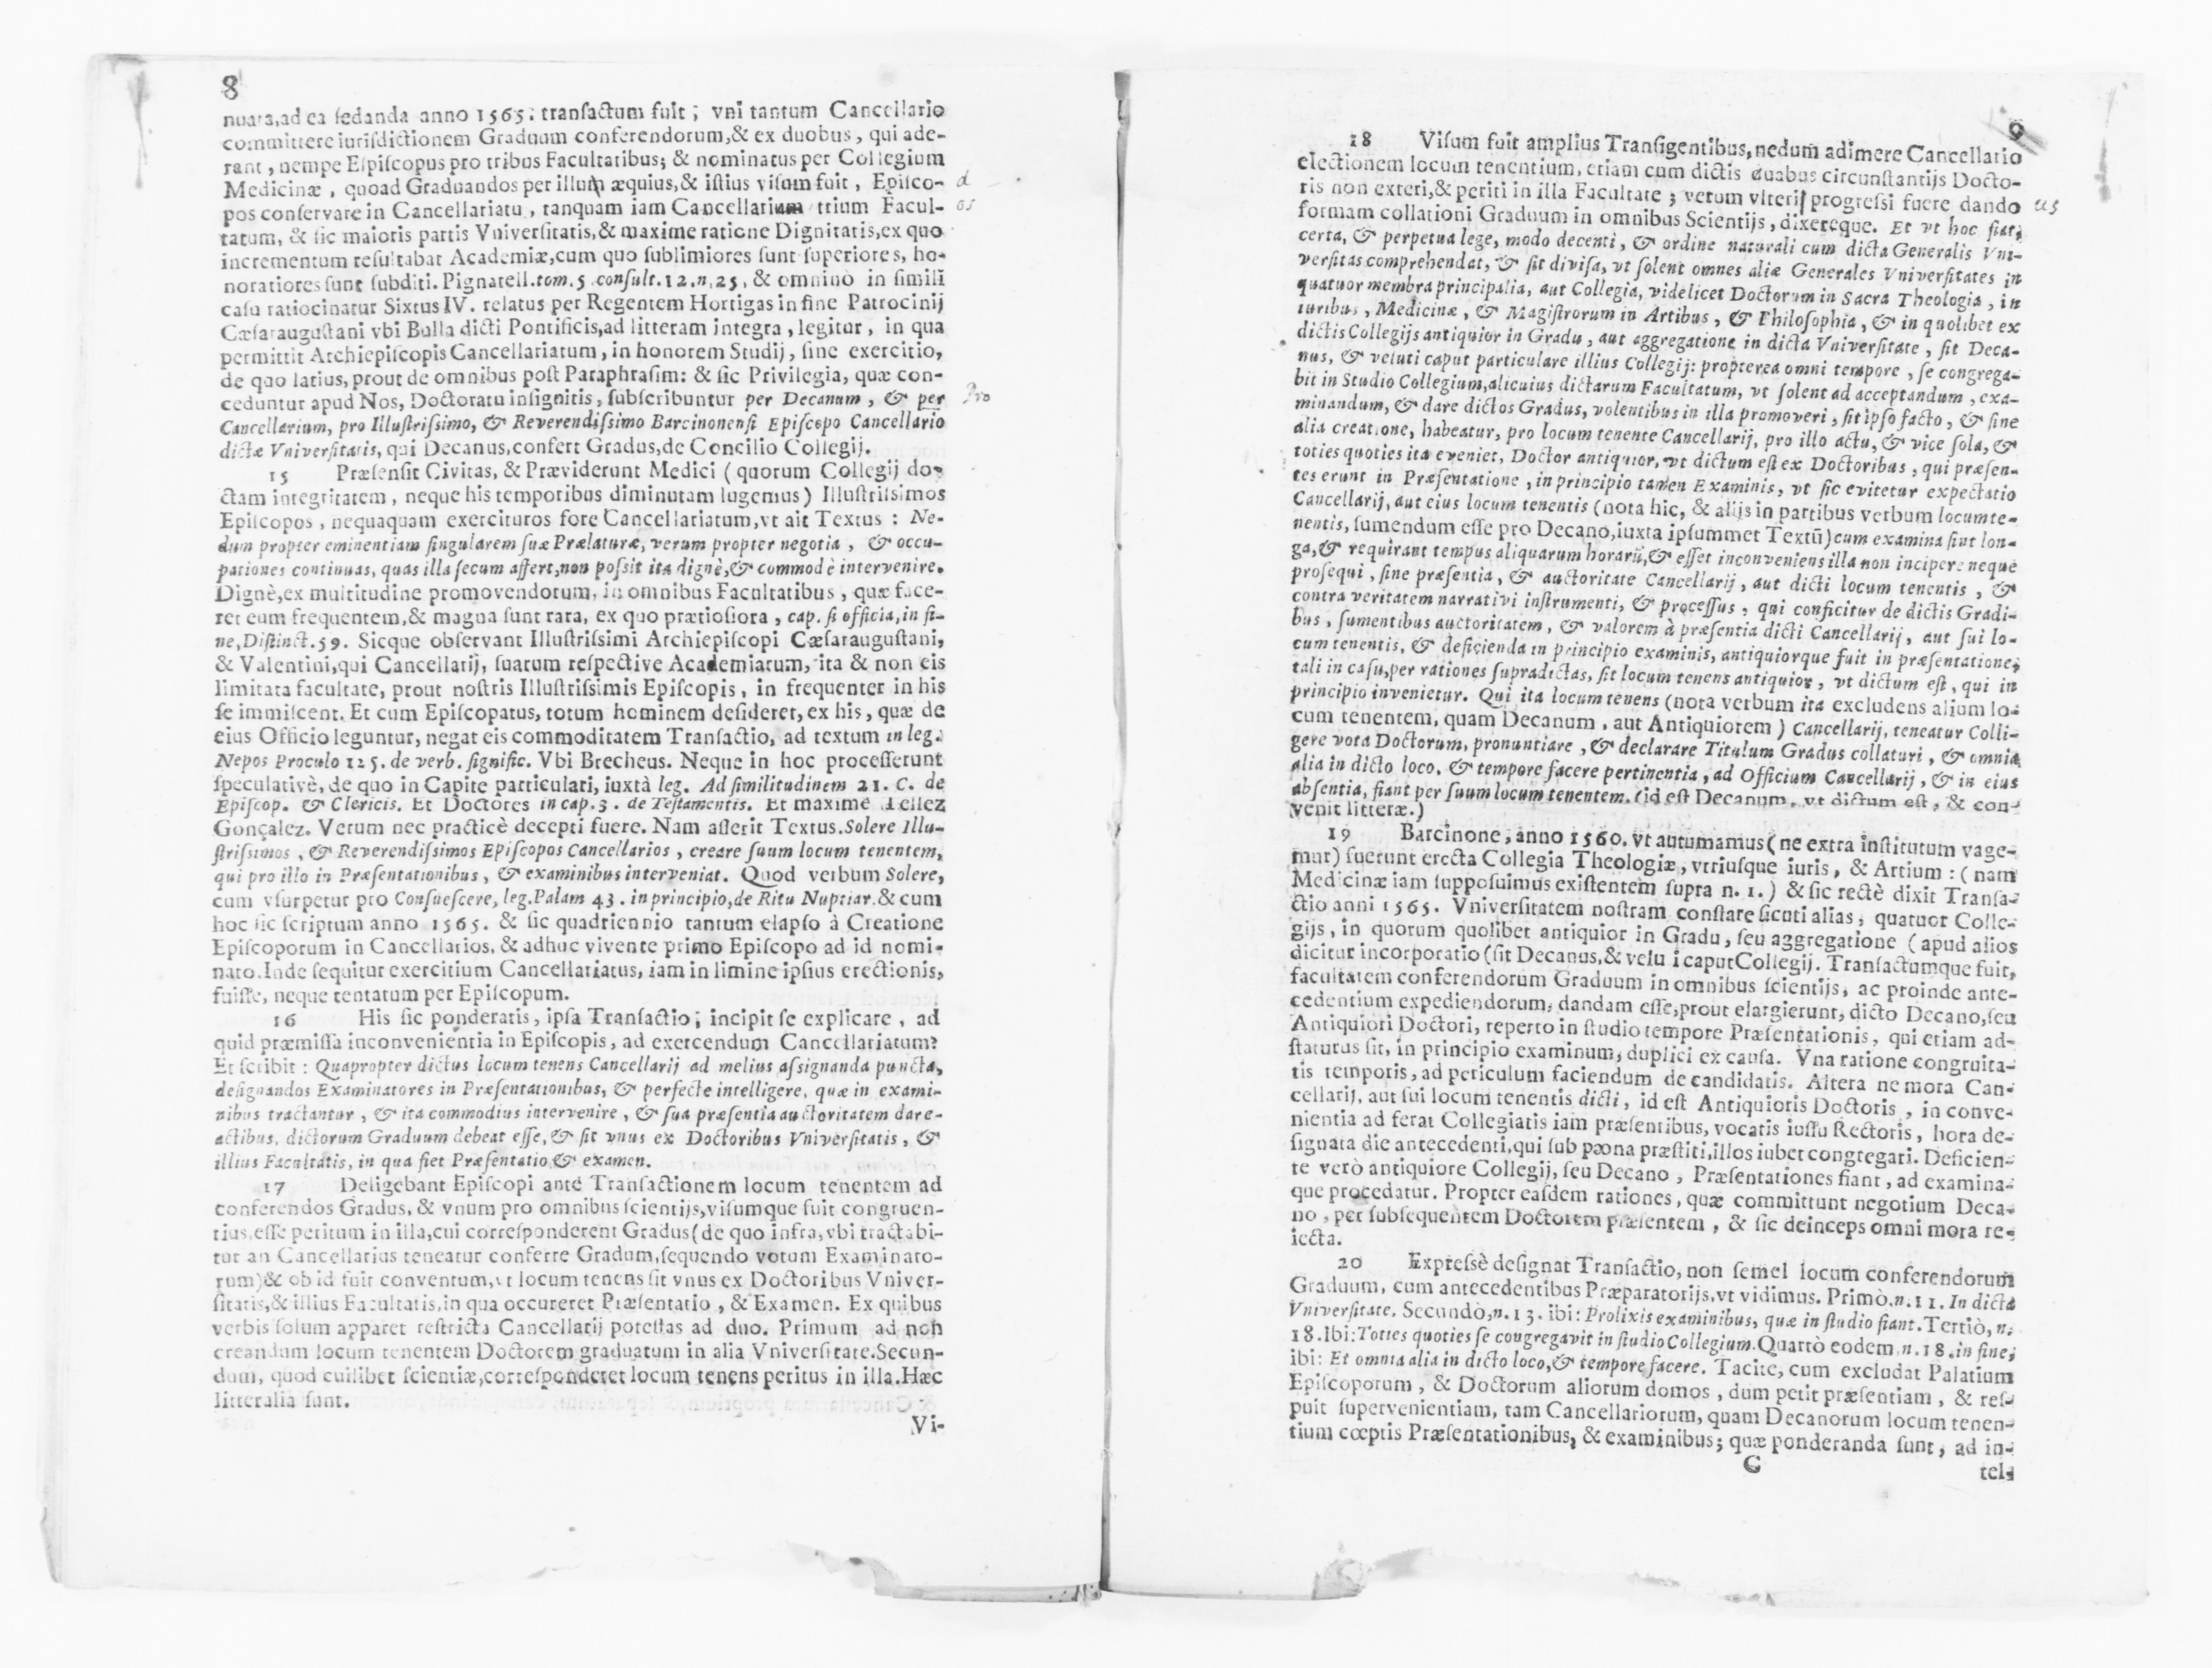 8
nuata, ad ea ſedanda anno 1565. tranſactum fuit; vni tantum Cancellario
committere iuriſdictionem Graduum conferendorum, & ex duobus, qui ade-
rant, nempe Eſpiſcopus pro tribus Facultatibus; & nominatus per Collegium
Medicinæ, quoad Graduandos per illum æquius, & iſtius viſum fuit, Epiſco- d
pos conſervare in Cancellariatu, tanquam iam Cancellarium trium Facul- os
tatum, & ſic maioris partis Vniverſitatis, & maxime ratione Dignitatis, ex quo
incrementum reſultabat Academiæ, cum quo ſublimiores ſunt ſuperiores, ho-
noratiores ſunt ſubditi. Pignatell. tom. 5. conſult. 12. n. 25. & omninò in ſimili
caſu ratiocinatur Sixtus IV. relatus per Regentem Hortigas in fine Patrocinij
Cæſarauguſtani vbi Bulla dicti Pontificis, ad litteram integra, legitur, in qua
permittit Archiepiſcopis Cancellariatum, in honorem Studij, ſine exercitio,
de quo latius, prout de omnibus poſt Paraphraſim: & ſic Privilegia, quæ con-
ceduntur apud Nos, Doctoratu inſignitis, ſubſcribuntur per Decanum, & per Pro
Cancellarium, pro Illuſtriſsimo, & Reverendiſsimo Barcinonenſi Epiſcopo Cancellario
dictæ Vniverſitatis, qui Decanus, confert Gradus, de Concilio Collegij.
15 Præſenſit Civitas, & Præviderunt Medici (quorum Collegij do-
ctam integritatem, neque his temporibus diminutam lugemus) Illuſtriſsimos
Epiſcopos, nequaquam exercituros fore Cancellariatum, vt ait Textus: Ne-
dum propter eminentiam ſingularem ſuæ Prælaturæ, verum propter negotia, & occu-
pationes continuas, quas illa ſecum affert, non poſsit ita dignè, & commodè intervenire.
Dignè, ex multitudine promovendorum, in omnibus Facultatibus, quæ face-
ret eum frequentem, & magna ſunt rara, ex quo prætioſiora, cap. ſi officia, in fi-
ne, Diſtinct. 59. Sicque obſervant Illuſtriſsimi Archiepiſcopi Cæſarauguſtani,
& Valentini, qui Cancellarij, ſuarum reſpective Academiarum, ita & non eis
limitata facultate, prout noſtris Illuſtriſsimis Epiſcopis, in frequenter in his
ſe immiſcent. Et cum Epiſcopatus, totum hominem deſideret, ex his, quæ de
eius Officio leguntur, negat eis commoditatem Tranſactio, ad textum in leg.
Nepos Proculo 125. de verb. ſignific. Vbi Brecheus. Neque in hoc proceſſerunt
ſpeculativè, de quo in Capite particulari, iuxtà leg. Ad ſimilitudinem 21. C. de
Epiſcop. & Clericis. Et Doctores in cap. 3. de Teſtamentis. Et maximè Tellez
Gonçalez. Verum nec practicè decepti fuere. Nam aſſerit Textus. Solere Illu-
ſtriſsimos, & Reverendiſsimos Epiſcopos Cancellarios, creare ſuum locum tenentem,
qui pro illo in Præſentationibus, & examinibus interveniat. Quod verbum Solere,
cum vſurpetur pro Conſueſcere, leg. Palam 43. in principio, de Ritu Nuptiar. & cum
hoc ſic ſcriptum anno 1565. & ſic quadriennio tantum elapſo à Creatione
Epiſcoporum in Cancellarios, & adhuc vivente primo Epiſcopo ad id nomi-
nato. Inde ſequitur exercitium Cancellariatus, iam in limine ipſius erectionis,
fuiſſe, neque tentatum per Epiſcopum.
16 His ſic ponderatis, ipſa Tranſactio; incipit ſe explicare, ad
quid præmiſſa inconvenientia in Epiſcopis, ad exercendum Cancellariatum?
Et ſcribit: Quapropter dictus locum tenens Cancellarij ad melius aſsignanda puncta,
deſignandos Examinatores in Præſentationibus, & perfecte intelligere, quæ in exami-
nibus tractantur, & ita commodius intervenire, & ſua præſentia auctoritatem dare-
actibus, dictorum Graduum debeat eſſe, & ſit vnus ex Doctoribus Vniverſitatis, &
illius Facultatis, in qua fiet Præſentatio & examen.
17 Deligebant Epiſcopi ante Tranſactionem locum tenentem ad
conferendos Gradus, & vnum pro omnibus ſcientijs, viſumque fuit congruen-
tius, eſſe peritum in illa, cui correſponderent Gradus (de quo infra, vbi tractabi-
tur an Cancellarius teneatur conferre Gradum, ſequendo votum Examinato-
rum) & ob id fuit conventum, vt locum tenens ſit vnus ex Doctoribus Vniver-
ſitatis, & illius Facultatis, in qua occureret Præſentatio, & Examen. Ex quibus
verbis ſolum apparet reſtricta Cancellarij poteſtas ad duo. Primum ad non
creandum locum tenentem Doctorem graduatum in alia Vniverſitate. Secun-
dum, quod cuilibet ſcientiæ, correſponderet locum tenens peritus in illa. Hæc
litteralia ſunt.
Vi-
9
18 Viſum fuit amplius Tranſigentibus, nedum adimere Cancellario
electionem locum tenentium, etiam cum dictis duabus circunſtantijs Docto-
ris non exteri, & periti in illa Facultate; verum vlteri progreſsi fuere dando us
formam collationi Graduum in omnibus Scientijs, dixereque. Et vt hoc fiat,
certa, & perpetua lege, modo decenti, & ordine naturali cum dicta Generalis Vni-
verſitas comprehendat, & ſit diviſa, vt ſolent omnes aliæ Generales Vniverſitates in
quatuor membra principalia, aut Collegia, videlicet Doctorum in Sacra Theologia, in
iuribus, Medicinæ, & Magiſtrorum in Artibus, & Philoſophia, & in quolibet ex
dictis Collegijs antiquior in Gradu, aut aggregatione in dicta Vniverſitate, ſit Deca-
nus, & veluti caput particulare illius Collegij: propterea omni tempore, ſe congrega-
bit in Studio Collegium, alicuius dictarum Facultatum, vt ſolent ad acceptandum, exa-
minandum, & dare dictos Gradus, volentibus in illa promoveri, ſit ipſo facto, & ſine
alia creatione, habeatur, pro locum tenente Cancellarij, pro illo actu, & vice ſola, &
toties quoties ita eveniet, Doctor antiquior, vt dictum eſt ex Doctoribus, qui præſen-
tes erunt in Præſentatione, in principio tamen Examinis, vt ſic evitetur expectatio
Cancellarij, aut eius locum tenentis (nota hic, & alijs in partibus verbum locumte-
nentis, ſumendum eſſe pro Decano, iuxta ipſummet Textũ) cum examina ſint lon-
ga, & requirant tempus aliquarum horarũ, & eſſet inconveniens illa non incipere neque
proſequi, ſine præſentia, & auctoritate Cancellarij, aut dicti locum tenentis, &
contra veritatem narrativi inſtrumenti, & proceſſus, qui conficitur de dictis Gradi-
bus, ſumentibus auctoritatem, & valorem à præſentia dicti Cancellarij, aut ſui lo-
cum tenentis, & deficienda in principio examinis, antiquiorque fuit in præſentatione;
tali in caſu, per rationes ſupradictas, ſit locum tenens antiquior, vt dictum eſt, qui in
principio invenietur. Qui ita locum tenens (nota verbum ita excludens alium lo-
cum tenentem, quam Decanum, aut Antiquiorem) Cancellarij, teneatur Colli-
gere vota Doctorum, pronuntiare, & declarare Titulum Gradus collaturi, & omnia
alia in dicto loco, & tempore facere pertinentia, ad Officium Cancellarij, & in eius
abſentia, fiant per ſuum locum tenentem. (id eſt Decanum, vt dictum eſt, & con-
venit litteræ.)
19 Barcinone, anno 1560. vt autumamus (ne extra inſtitutum vage-
mur) fuerunt erecta Collegia Theologiæ, vtriuſque iuris, & Artium: (nam
Medicinæ iam ſuppoſuimus exiſtentem ſupra n. 1.) & ſic rectè dixit Tranſa-
ctio anni 1565. Vniverſitatem noſtram conſtare ſicuti alias, quatuor Colle-
gijs, in quorum quolibet antiquior in Gradu, ſeu aggregatione (apud alios
dicitur incorporatio (ſit Decanus, & velu i caput Collegij. Tranſactumque fuit,
facultatem conferendorum Graduum in omnibus ſcientijs, ac proinde ante-
cedentium expediendorum, dandam eſſe, prout elargierunt, dicto Decano, ſeu
Antiquiori Doctori, reperto in ſtudio tempore Præſentationis, qui etiam ad-
ſtaturus ſit, in principio examinum, duplici ex cauſa. Vna ratione congruita-
tis temporis, ad periculum faciendum de candidatis. Altera ne mora Can-
cellarij, aut ſui locum tenentis dicti, id eſt Antiquioris Doctoris, in conve-
nientia ad ferat Collegiatis iam præſentibus, vocatis iuſſu Rectoris, hora de-
ſignata die antecedenti, qui ſub pœna præſtiti, illos iubet congregari. Deficien-
te verò antiquiore Collegij, ſeu Decano, Præſentationes fiant, ad examina-
que procedatur. Propter eaſdem rationes, quæ committunt negotium Deca-
no, per ſubſequentem Doctorem præſentem, & ſic deinceps omni mora re-
iecta.
20 Expreſsè deſignat Tranſactio, non ſemel locum conferendorum
Graduum, cum antecedentibus Præparatorijs, vt vidimus. Primò, n. 11. In dicta
Vniverſitate. Secundò, n. 13. ibi: Prolixis examinibus, quæ in ſtudio fiant. Tertiò, n.
18. Ibi: Toties quoties ſe congregavit in ſtudio Collegium. Quartò eodem n. 18. in fine;
ibi: Et omnia alia in dicto loco, & tempore facere. Tacite, cum excludat Palatium
Epiſcoporum, & Doctorum aliorum domos, dum petit præſentiam, & reſ-
puit ſupervenientiam, tam Cancellariorum, quam Decanorum locum tenen-
tium cœptis Præſentationibus, & examinibus; quæ ponderanda ſunt, ad in-
C
tel-